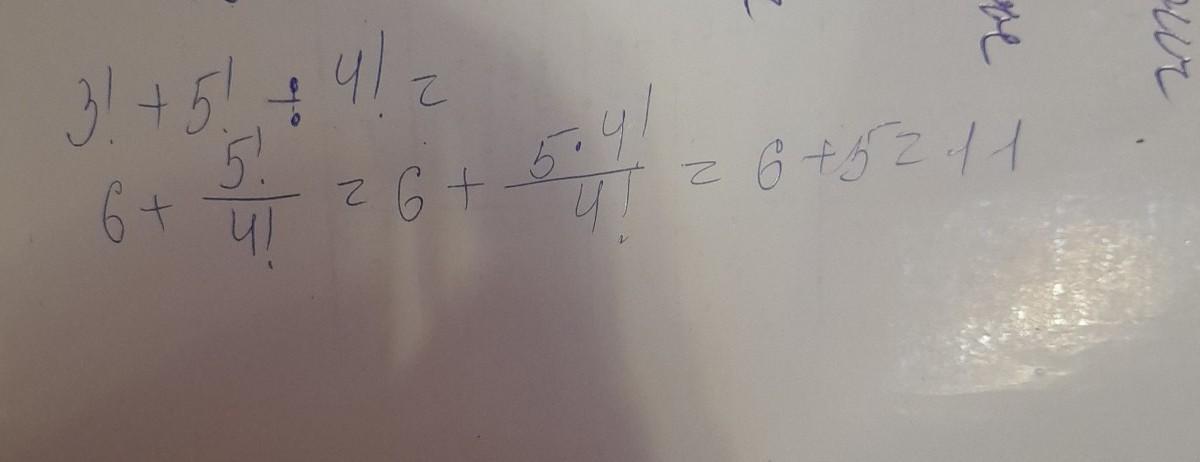 3! + 5! ÷ 4! =
6 + 5!/4! = 6 + 5·4!/4! = 6 + 5 = 11